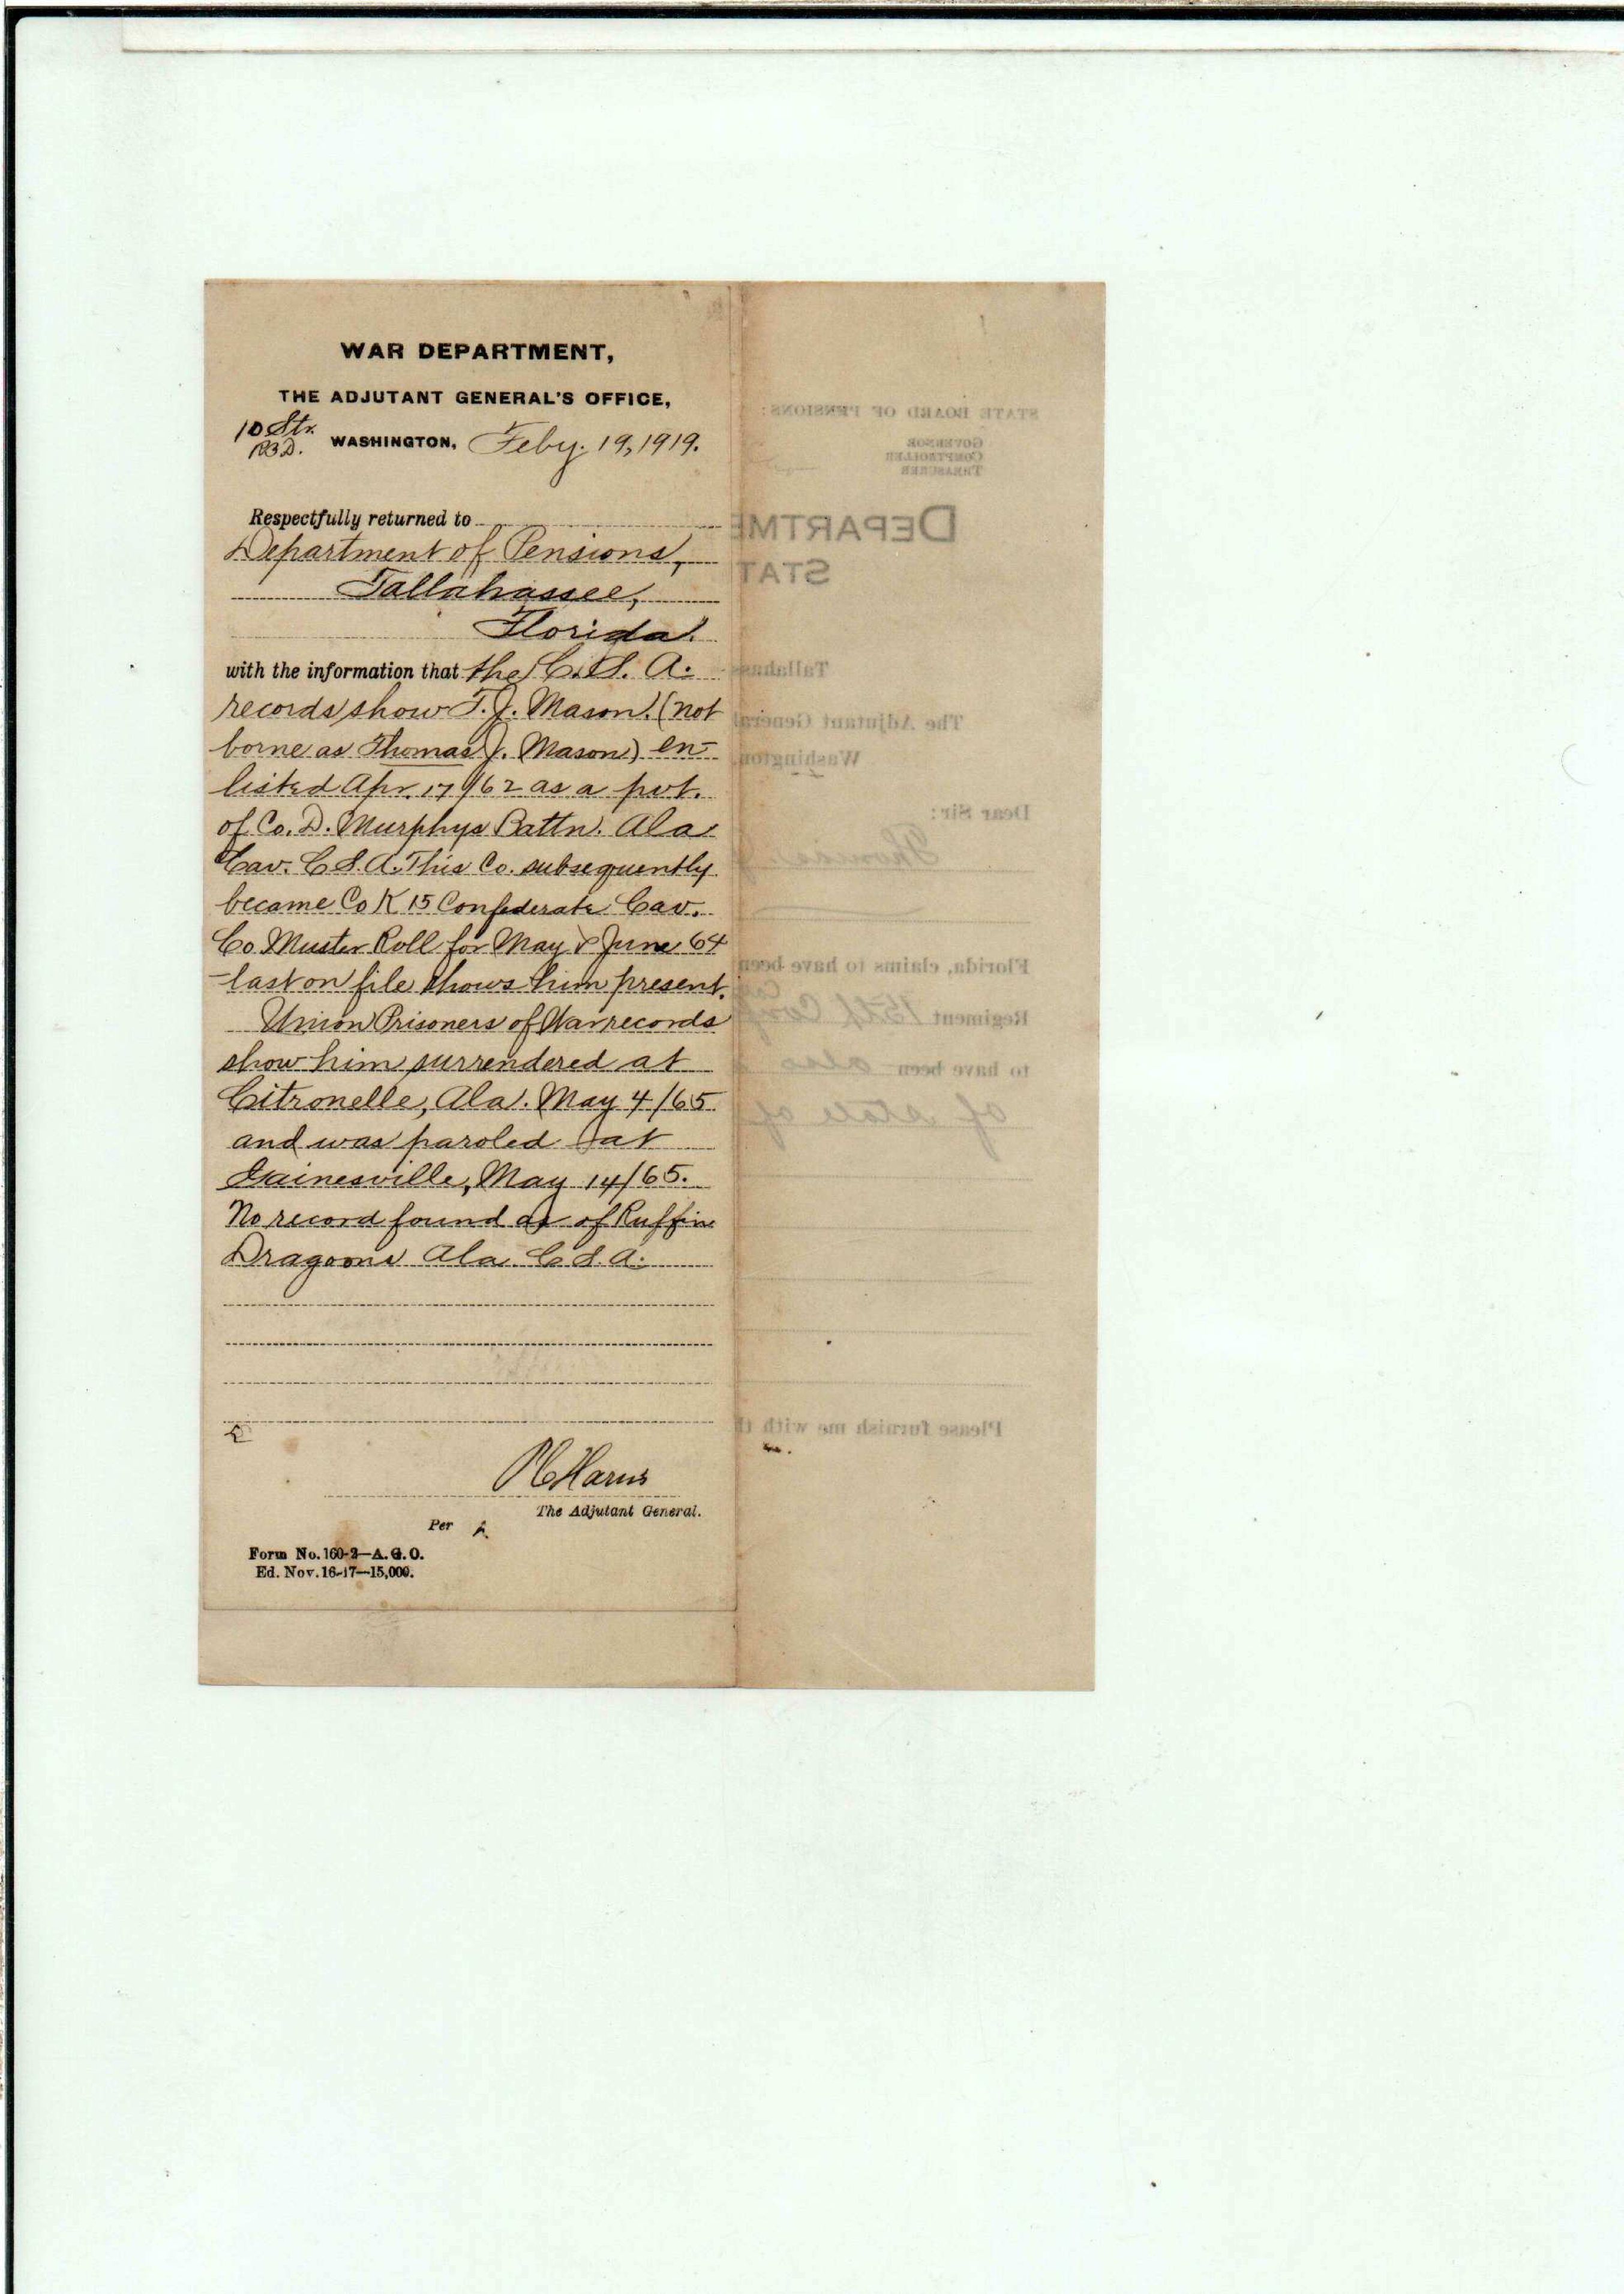 WAR DEPARTMENT,
THE ADJUTANT GENERAL'S OFFICE,
10 Str.
WASHINGTON, Feby. 19, 1919.
Respectfully returned to
Department of Pensions,
Tallahassee,
Florida.
with the information that the C. S. A.
records show T. J. Mason. (not
borne as Thomas J. Mason) en-
listed Apr. 17/62 as a pvt.
of Co. D. Murphys Battn. Ala
Cav. C S. A. This Co. subsequently
became Co K 15 Confederate Cav.
Co Muster Roll for May & June 64
-last on file shows him present.
Union Prisoners of War records
show him surrendered at
Citronelle, Ala. May 4/65
and was paroled at
Gainesville, May 14/65.
No record found as of Ruffin
Dragoons Ala. C S. A.
P C Harris
The Adjutant General.
Per
Form No. 160-2—A. G. O.
Ed. Nov. 16-17—15,000.
STATE BOARD OF PENSIONS:
GOVERNOR
COMPTROLLER
TREASURER
DEPARTME
STAT
Tallahass
The Adjutant General
Washington
Dear Sir:
Thomas J
Florida, claims to have been
Regiment 15th Conf Cav
to have been also
of state of
Please furnish me with th